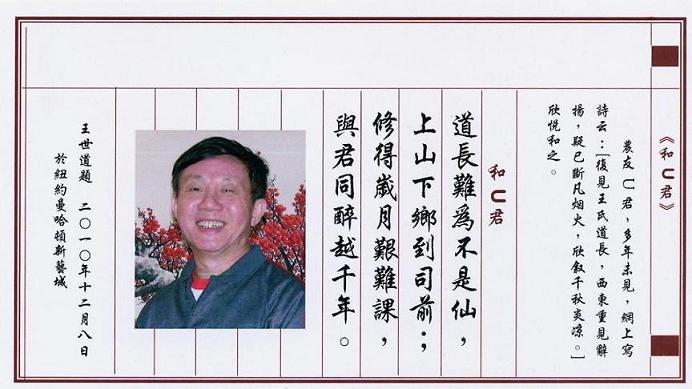 《和C君》
農友C君，多年未見，網上寫
詩云：[復見王氏道長，西東重見
揚，疑已斷凡烟火，欣敘千秋炎凉。]
欣悅和之。
和C君
道長難為不是仙，
上山下鄉到司前；
修得歲月艱難課，
與君同醉越千年。
王世道題 二〇一〇年十二月八日
於紐約曼哈頓新藝城